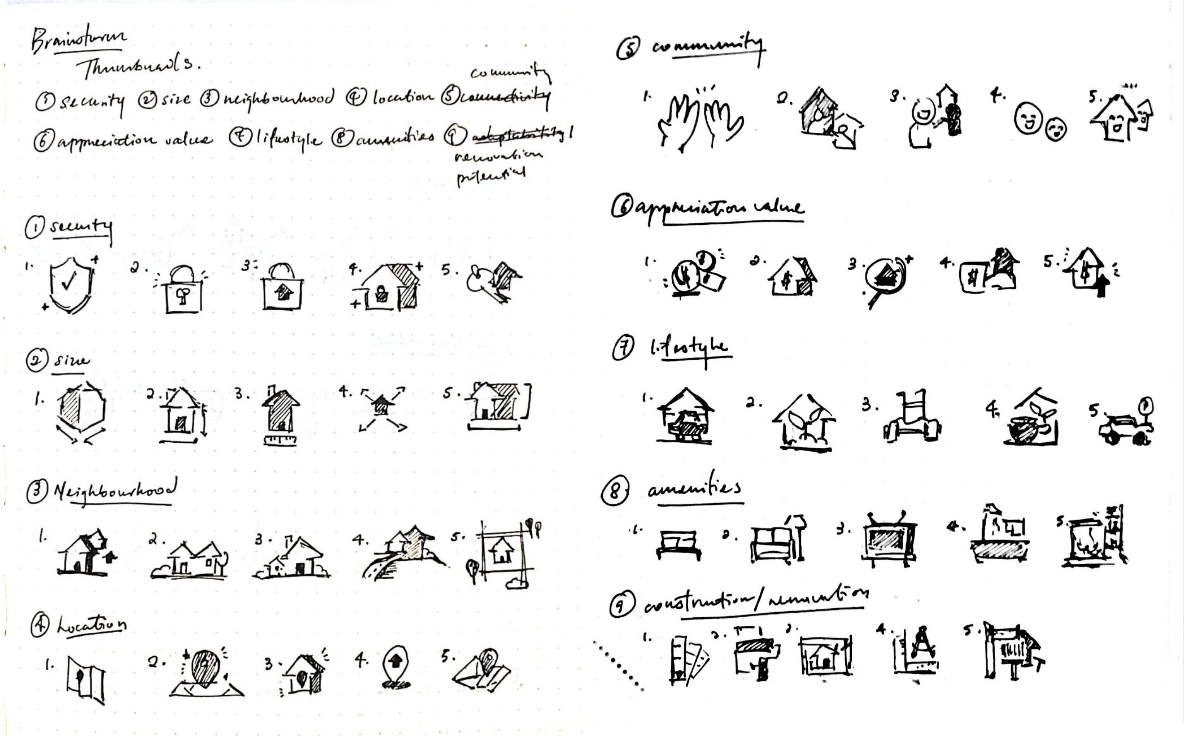 Brainstorm
Thumbnails.
community
① security ② size ③ neighbourhood ④ location ⑤ connectivity
⑥ appreciation value ⑦ lifestyle ⑧ amenities ⑨ adaptability/
renovation
potential
① security
1. 2. 3. 4. 5.
② size
1. 2. 3. 4. 5.
③ Neighbourhood
1. 2. 3. 4. 5.
④ Location
1. 2. 3. 4. 5.
⑤ community
1. 2. 3. 4. 5.
⑥ appreciation value
1. 2. 3. 4. 5.
$ $ $ $ $
⑦ lifestyle
1. 2. 3. 4. 5.
⑧ amenities
1. 2. 3. 4. 5.
⑨ construction/renovation
1. 2. 3. 4. 5.
A